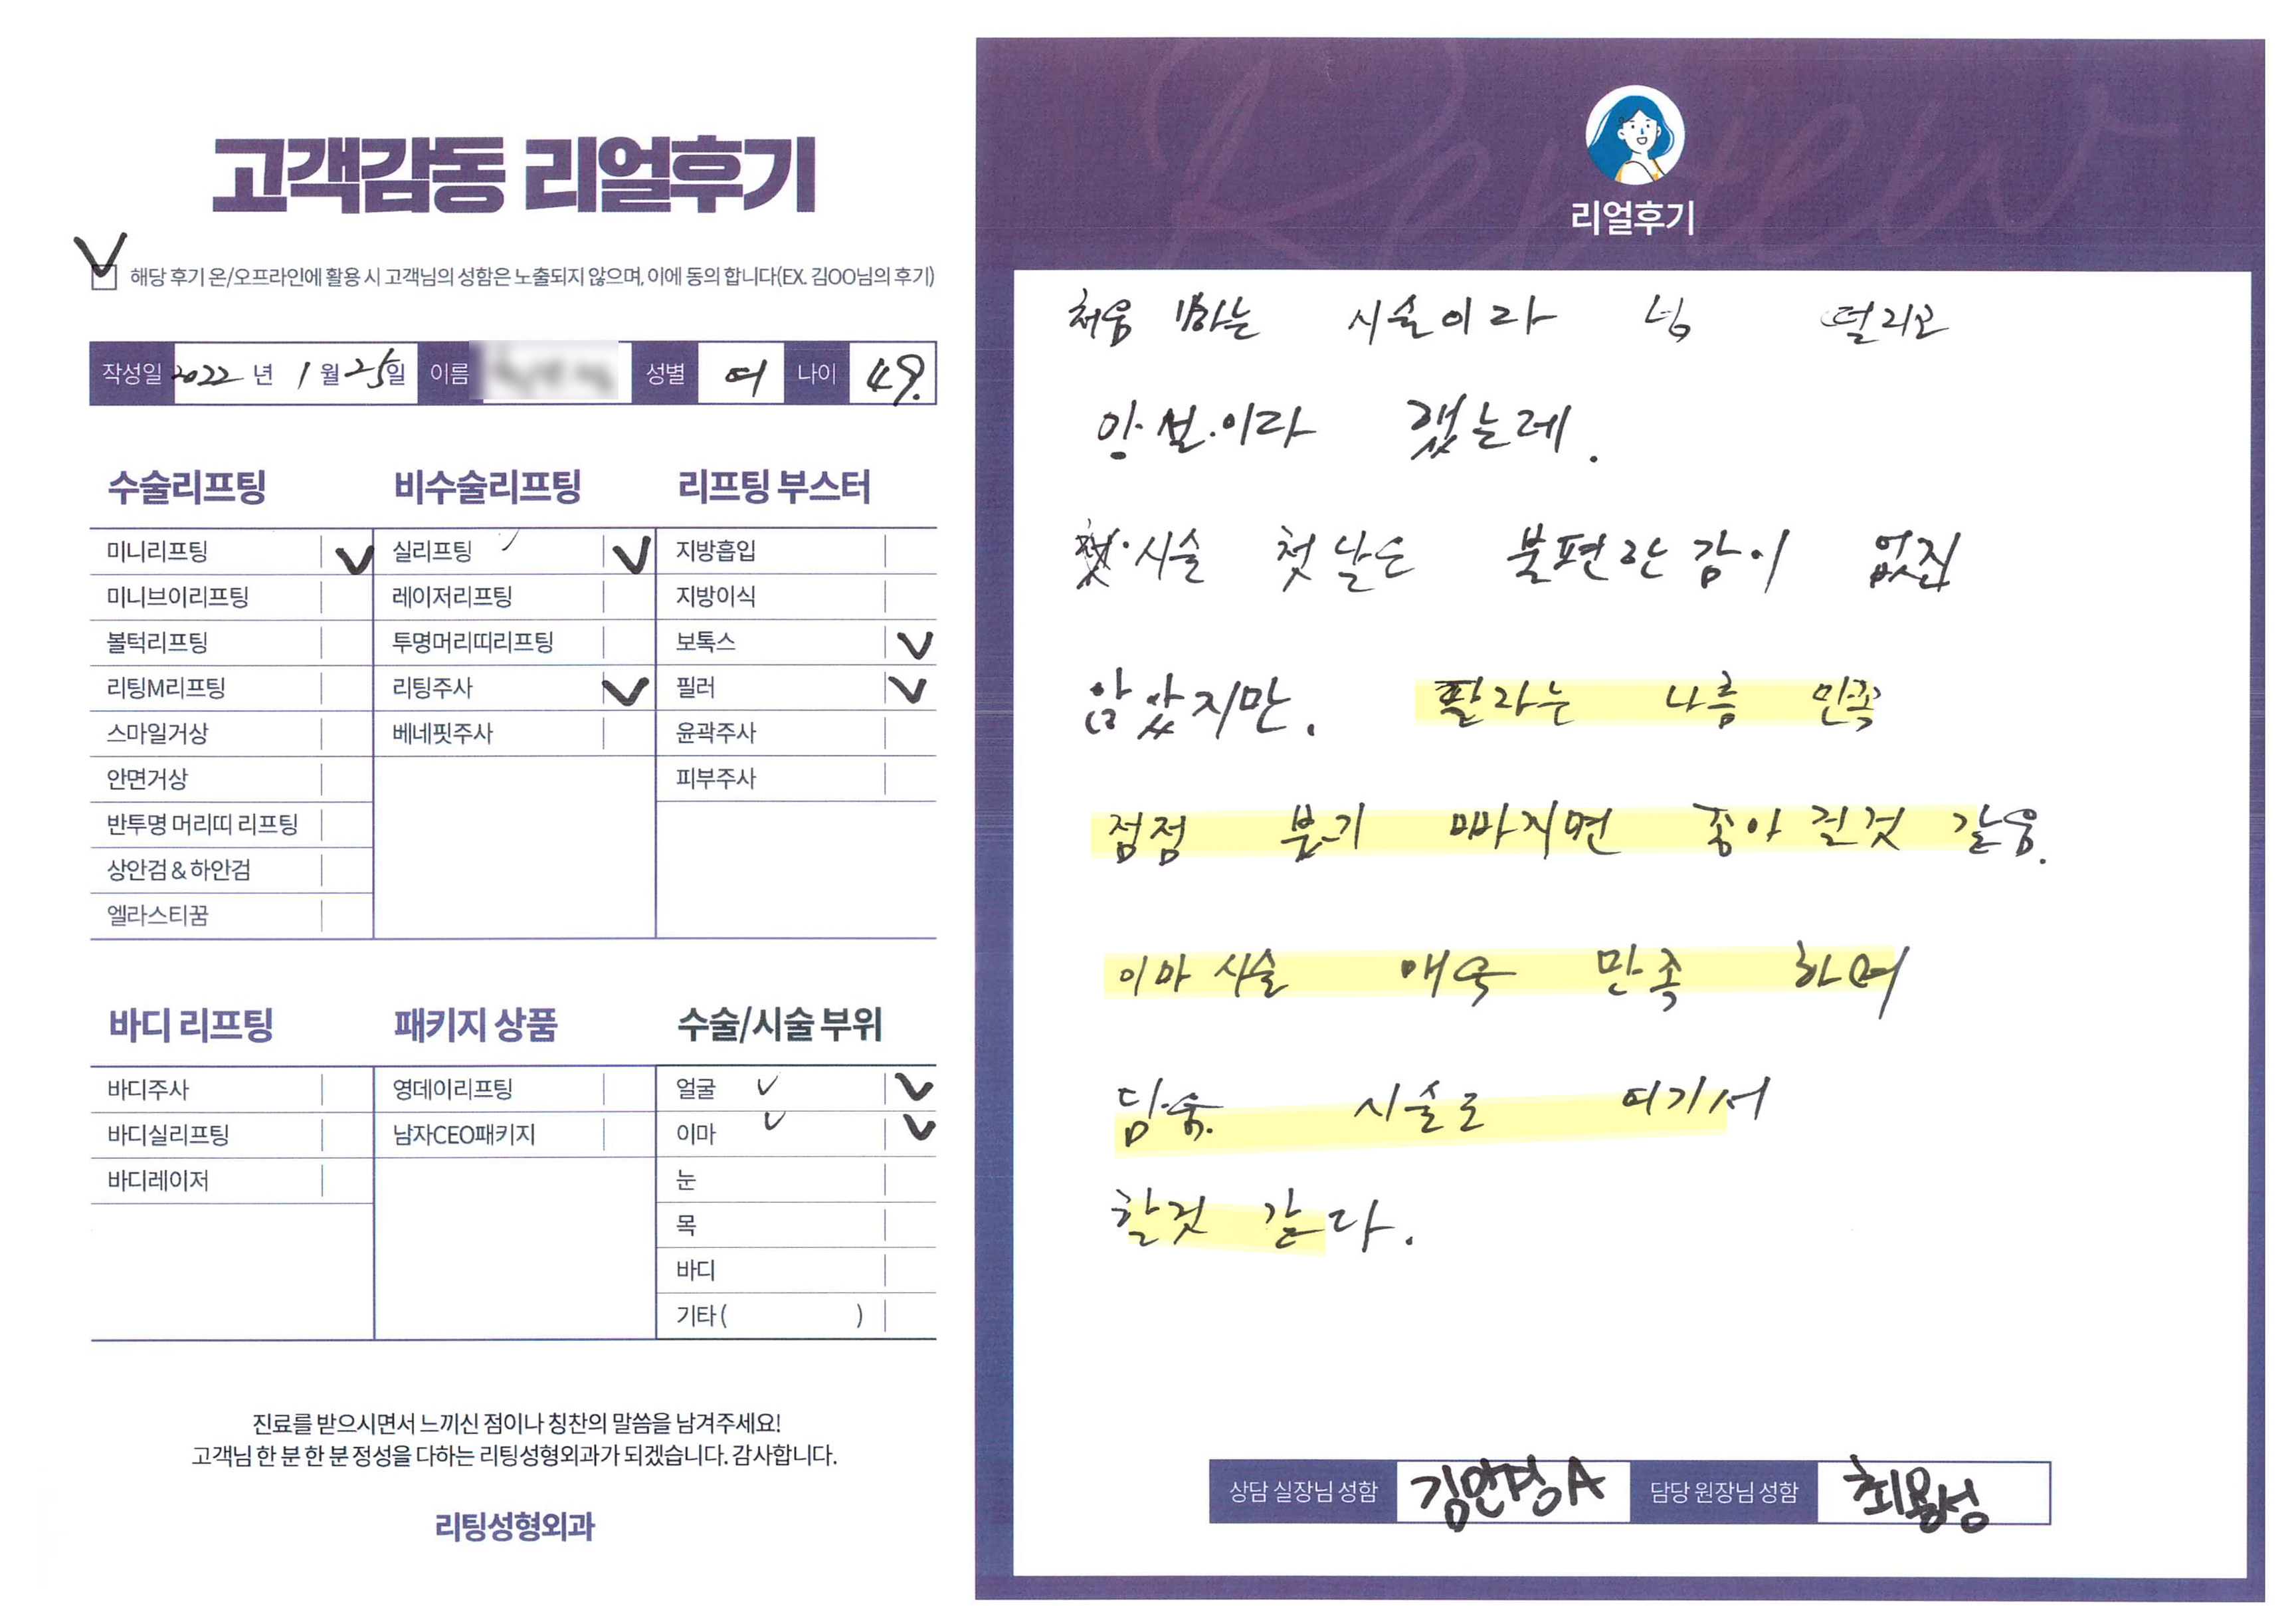 고객감동 리얼후기
해당 후기 온/오프라인에 활용 시 고객님의 성함은 노출되지 않으며, 이에 동의 합니다(EX. 김OO님의 후기)
작성일 2022 년 1 월 25 일 이름 성별 여 나이 49.
수술리프팅
미니리프팅
미니브이리프팅
볼턱리프팅
리팅M리프팅
스마일거상
안면거상
반투명 머리띠 리프팅
상안검 & 하안검
엘라스티꿈
비수술리프팅
실리프팅
레이저리프팅
투명머리띠리프팅
리팅주사
베네핏주사
리프팅 부스터
지방흡입
지방이식
보톡스
필러
윤곽주사
피부주사
바디 리프팅
바디주사
바디실리프팅
바디레이저
패키지 상품
영데이리프팅
남자CEO패키지
수술/시술 부위
얼굴
이마
눈
목
바디
기타 ( )
진료를 받으시면서 느끼신 점이나 칭찬의 말씀을 남겨주세요!
고객님 한 분 한 분 정성을 다하는 리팅성형외과가 되겠습니다. 감사합니다.
리팅성형외과
Review
리얼후기
처음 하는 시술이라 넘 떨리고
이라 했는데.
시술 첫날은 불편한 감이 없진
않았지만. 나름 만족
점점 붓기 빠지면 좋아 질것 같음.
이마 시술 매우 만족 하며
담음. 시술도 여기서
할것 같다.
상담 실장님 성함 A 담당 원장님 성함 최용성